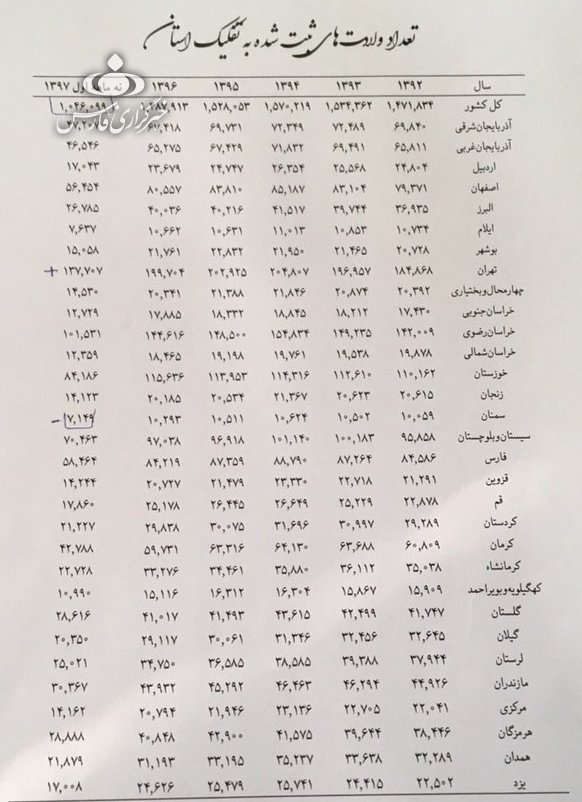 تعداد ولادت‌های ثبت شده به تفکیک استان
سال ۱۳۹۲ ۱۳۹۳ ۱۳۹۴ ۱۳۹۵ ۱۳۹۶ نه ماهه اول ۱۳۹۷
کل کشور ۱,۴۷۱,۸۳۴ ۱,۵۳۴,۳۶۲ ۱,۵۷۰,۲۱۹ ۱,۵۲۸,۰۵۳ ۱,۲۸۷,۹۱۳ ۱,۰۴۶,۰۹۹
خبرگزاری فارس
آذربایجان‌شرقی ۶۹,۸۴۰ ۷۲,۴۸۹ ۷۲,۳۴۹ ۶۹,۷۳۱ ۶۷,۴۱۸
آذربایجان‌غربی ۶۵,۸۱۱ ۶۹,۴۹۱ ۷۱,۸۳۲ ۶۷,۴۲۹ ۶۵,۲۷۵ ۴۶,۵۴۶
اردبیل ۲۴,۸۰۴ ۲۵,۵۶۸ ۲۶,۳۵۴ ۲۴,۷۴۷ ۲۳,۶۷۹ ۱۷,۰۴۳
اصفهان ۷۹,۳۷۱ ۸۳,۱۰۴ ۸۵,۱۸۷ ۸۳,۸۱۰ ۸۰,۵۵۷ ۵۶,۴۵۴
البرز ۳۶,۹۳۵ ۳۹,۷۴۴ ۴۱,۵۱۷ ۴۰,۲۱۶ ۴۰,۰۳۶ ۲۶,۷۸۵
ایلام ۱۰,۷۳۴ ۱۰,۸۵۳ ۱۱,۰۱۳ ۱۰,۶۳۱ ۱۰,۶۶۲ ۷,۶۳۷
بوشهر ۲۰,۷۲۸ ۲۱,۴۶۵ ۲۱,۹۵۰ ۲۲,۸۳۲ ۲۱,۷۶۱ ۱۵,۰۵۸
تهران ۱۸۴,۸۶۸ ۱۹۶,۹۵۷ ۲۰۴,۸۰۷ ۲۰۲,۹۲۵ ۱۹۹,۷۰۴ ۱۳۷,۷۰۷ +
چهارمحال‌وبختیاری ۲۰,۳۹۲ ۲۰,۸۷۴ ۲۱,۸۴۶ ۲۱,۳۸۸ ۲۰,۳۴۱ ۱۴,۵۳۰
خراسان‌جنوبی ۱۷,۴۳۰ ۱۸,۲۱۲ ۱۸,۸۴۵ ۱۸,۳۳۲ ۱۷,۸۸۵ ۱۲,۷۲۹
خراسان‌رضوی ۱۴۲,۰۰۹ ۱۴۹,۲۳۵ ۱۵۴,۸۳۴ ۱۴۸,۵۰۰ ۱۴۴,۶۱۶ ۱۰۱,۵۳۱
خراسان‌شمالی ۱۹,۸۷۸ ۱۹,۵۳۸ ۱۹,۷۶۱ ۱۹,۱۹۸ ۱۸,۴۶۵ ۱۲,۳۵۹
خوزستان ۱۱۰,۱۶۲ ۱۱۲,۶۱۰ ۱۱۴,۳۱۶ ۱۱۳,۹۵۳ ۱۱۵,۶۳۶ ۸۴,۱۸۶
زنجان ۲۰,۶۱۵ ۲۰,۶۲۳ ۲۱,۳۶۷ ۲۰,۵۳۴ ۲۰,۱۸۵ ۱۴,۱۲۳
سمنان ۱۰,۰۵۹ ۱۰,۵۰۲ ۱۰,۶۲۴ ۱۰,۵۱۱ ۱۰,۲۹۳ ۷,۱۴۹ -
سیستان‌وبلوچستان ۹۵,۸۵۸ ۱۰۰,۱۸۳ ۱۰۱,۱۴۰ ۹۶,۹۱۸ ۹۷,۰۳۸ ۷۰,۴۶۳
فارس ۸۴,۵۸۶ ۸۷,۲۶۴ ۸۸,۷۹۰ ۸۷,۳۵۹ ۸۴,۲۱۹ ۵۸,۴۶۴
قزوین ۲۱,۲۹۱ ۲۲,۷۱۸ ۲۳,۳۳۰ ۲۱,۴۷۹ ۲۰,۷۲۷ ۱۴,۲۴۴
قم ۲۲,۸۷۸ ۲۵,۲۲۹ ۲۶,۶۴۹ ۲۶,۴۴۵ ۲۵,۱۷۸ ۱۷,۸۶۰
کردستان ۲۹,۲۸۹ ۳۰,۹۹۷ ۳۱,۶۹۶ ۳۰,۰۷۵ ۲۹,۸۳۸ ۲۱,۲۲۷
کرمان ۶۰,۸۰۹ ۶۳,۶۸۸ ۶۴,۱۳۰ ۶۳,۳۱۶ ۵۹,۷۳۱ ۴۲,۷۸۸
کرمانشاه ۳۵,۰۳۸ ۳۶,۱۱۲ ۳۵,۸۸۰ ۳۴,۴۶۱ ۳۳,۲۷۶ ۲۲,۷۲۸
کهگیلویه‌وبویراحمد ۱۵,۹۰۹ ۱۵,۸۶۷ ۱۶,۳۰۴ ۱۶,۳۱۲ ۱۵,۱۱۶ ۱۰,۹۹۰
گلستان ۴۱,۷۴۷ ۴۲,۴۹۹ ۴۳,۶۱۵ ۴۱,۴۹۳ ۴۱,۰۱۷ ۲۸,۶۱۶
گیلان ۳۲,۶۴۵ ۳۲,۴۵۶ ۳۱,۳۴۶ ۳۰,۰۶۱ ۲۹,۱۱۷ ۲۰,۳۵۰
لرستان ۳۷,۹۴۴ ۳۹,۳۸۸ ۳۸,۵۸۵ ۳۶,۵۸۵ ۳۴,۷۵۰ ۲۵,۰۲۱
مازندران ۴۴,۹۲۶ ۴۶,۲۹۴ ۴۶,۴۶۳ ۴۵,۲۹۲ ۴۳,۹۳۲ ۳۰,۳۶۷
مرکزی ۲۲,۰۴۱ ۲۲,۷۰۵ ۲۳,۱۳۶ ۲۱,۹۴۶ ۲۰,۷۹۴ ۱۴,۱۶۲
هرمزگان ۳۸,۴۴۶ ۳۹,۶۴۴ ۴۱,۵۷۵ ۴۲,۹۰۰ ۴۰,۸۴۸ ۲۸,۸۸۸
همدان ۳۲,۲۸۹ ۳۳,۶۳۸ ۳۵,۲۳۷ ۳۳,۱۹۵ ۳۱,۱۹۳ ۲۱,۸۷۹
یزد ۲۲,۵۰۲ ۲۴,۴۱۵ ۲۵,۷۴۱ ۲۵,۴۷۹ ۲۴,۶۲۶ ۱۷,۰۰۸